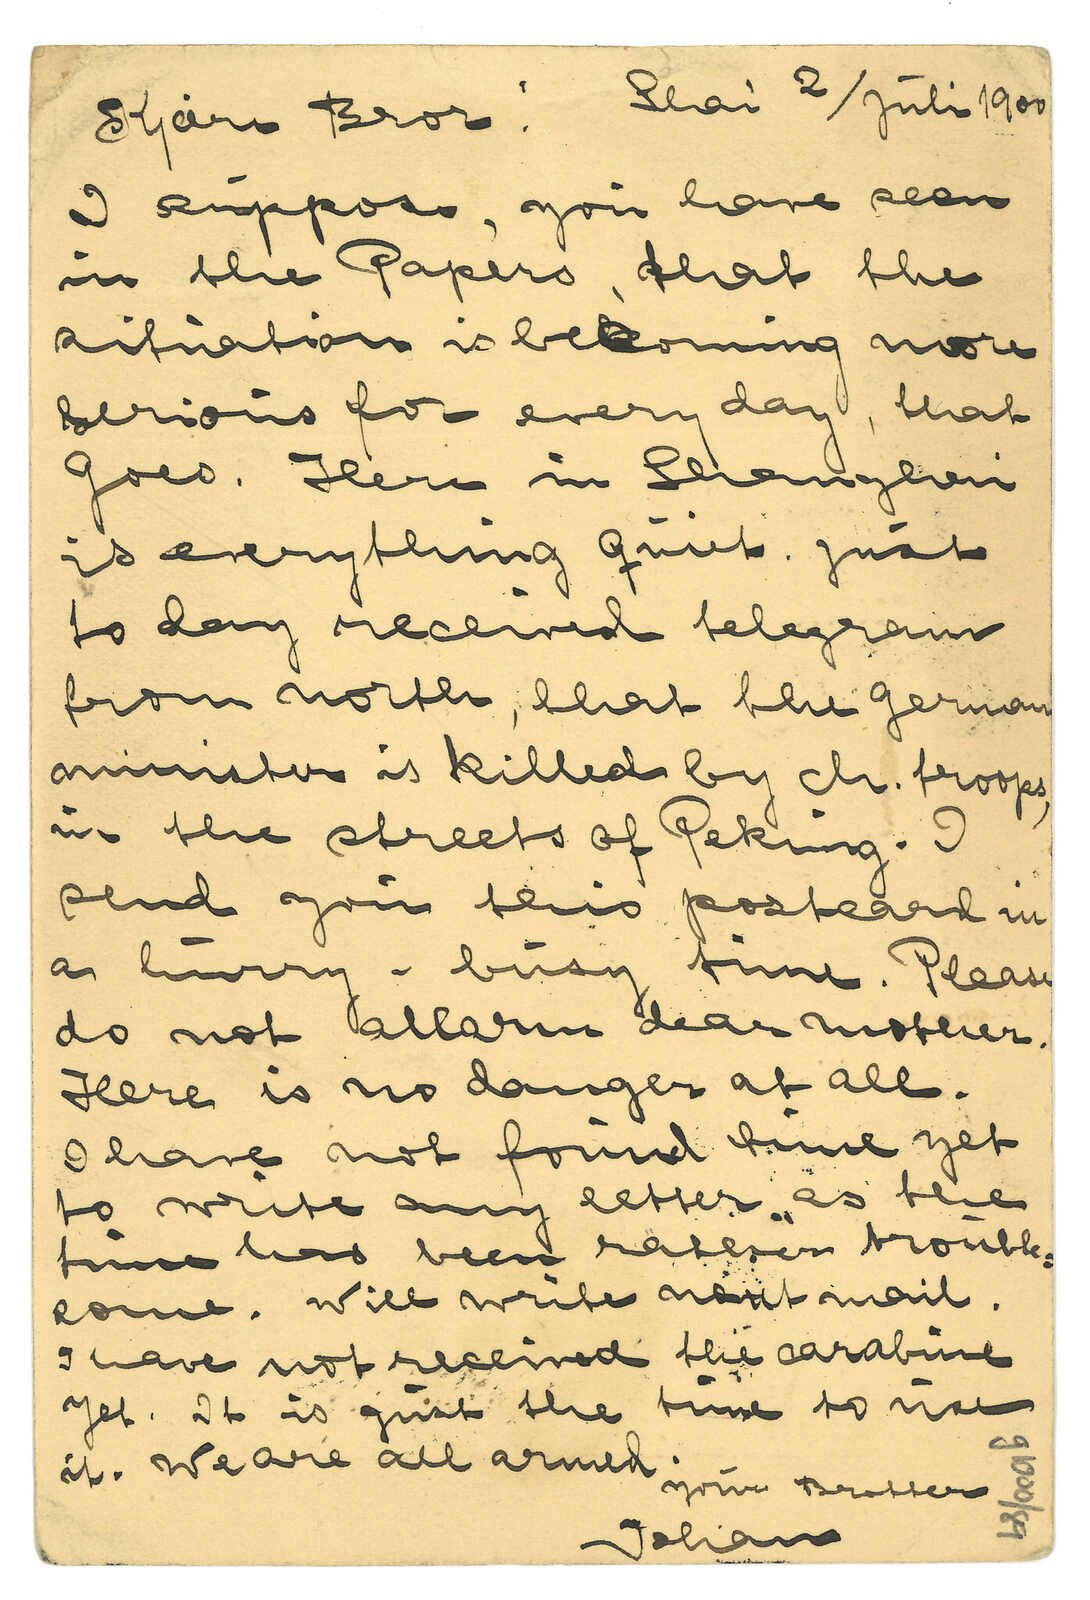 Shai 2/Juli 1900
Kjäre Bror!
I suppose, you have seen
in the Papers, that the
situation is becoming more
serious for every day, that
goes. Here in Shanghai
is everything quiet. Just
to day received telegram
from north, that the german
minister is killed by ch. troops,
in the streets of Peking. I
send you this postcard in
a hurry - busy time. Please
do not allarm dear mother.
Here is no danger at all.
I have not found time yet
to write any letter, as the
time has been rather trouble=
some. Will write next mail.
I have not received the carabine
yet. It is just the time to use
it. We are all armed.
your Brother
Johan